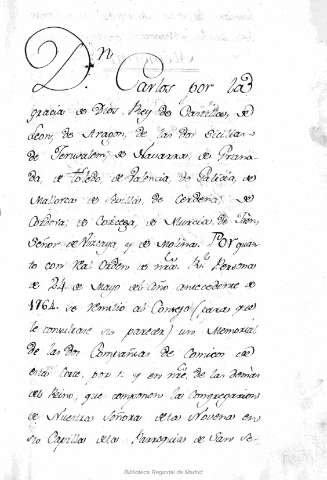 Dn. Carlos por la
gracia de Dios, Rey de Castilla, de
Leon, de Aragon, de las dos Sicilias,
de Jerusalem, de Navarra, de Grana-
da, de Toledo, de Valencia, de Galicia, de
Mallorca, de Sevilla, de Cerdeña, de
Cordova, de Corcega, de Murcia, de Jaen,
Señor de Vizcaya, y de Molina. Por quan-
to con Rl. Orden de mia Rl. Persona
de 24 de Mayo del Año antecedente de
1764 se remitio al Consejo (para que
le consultase su parecer) un Memorial
de las dos Compañias de Comicos de
esta Corte, por si y en nre. de las demas
del Reino, que componen la Congregacion
de Nuestra Señora de la Novena en
su Capilla de la Parroquia de San Se-
Biblioteca Regional de Madrid